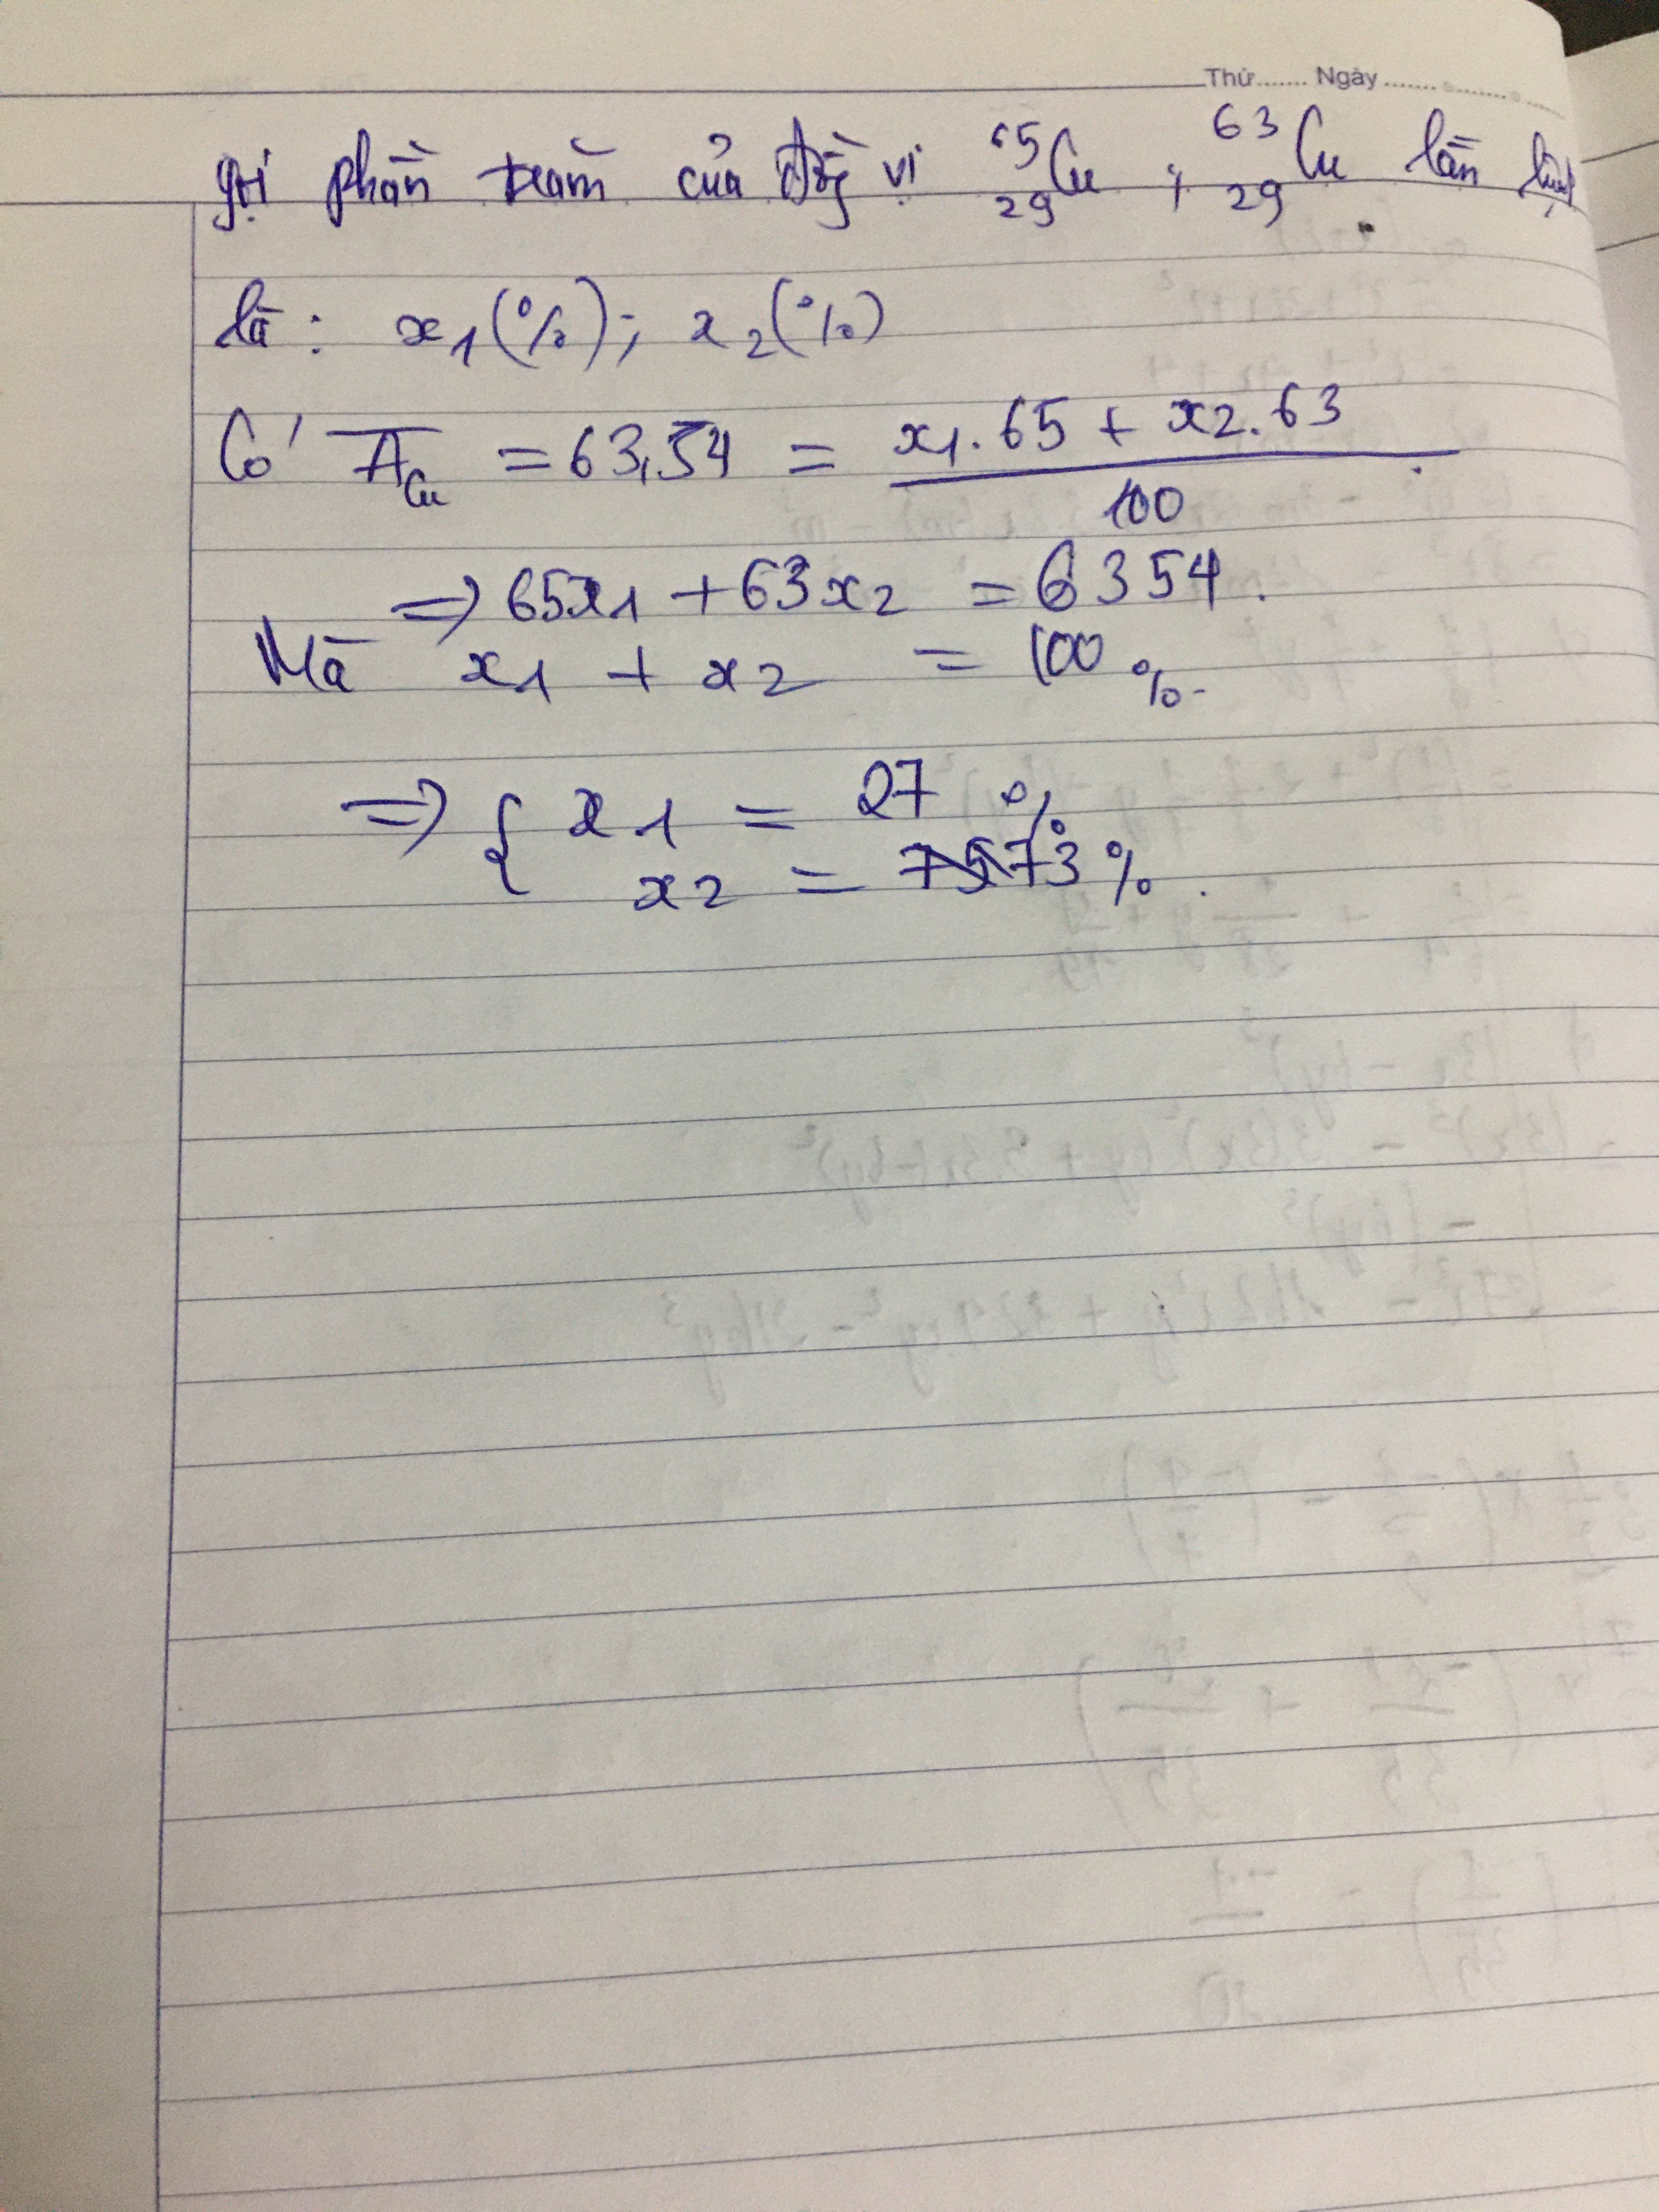 Thứ....... Ngày.......
gọi phần trăm của đồng vị ⁶⁵₂₉Cu ; ⁶³₂₉Cu lần lượt
là : x₁(%) ; x₂(%)
Có A̅_Cu = 63,54 = (x₁.65 + x₂.63)/100
=> 65x₁ + 63x₂ = 6354.
Mà x₁ + x₂ = 100 %.
=> { x₁ = 27 %
x₂ = 73 % .